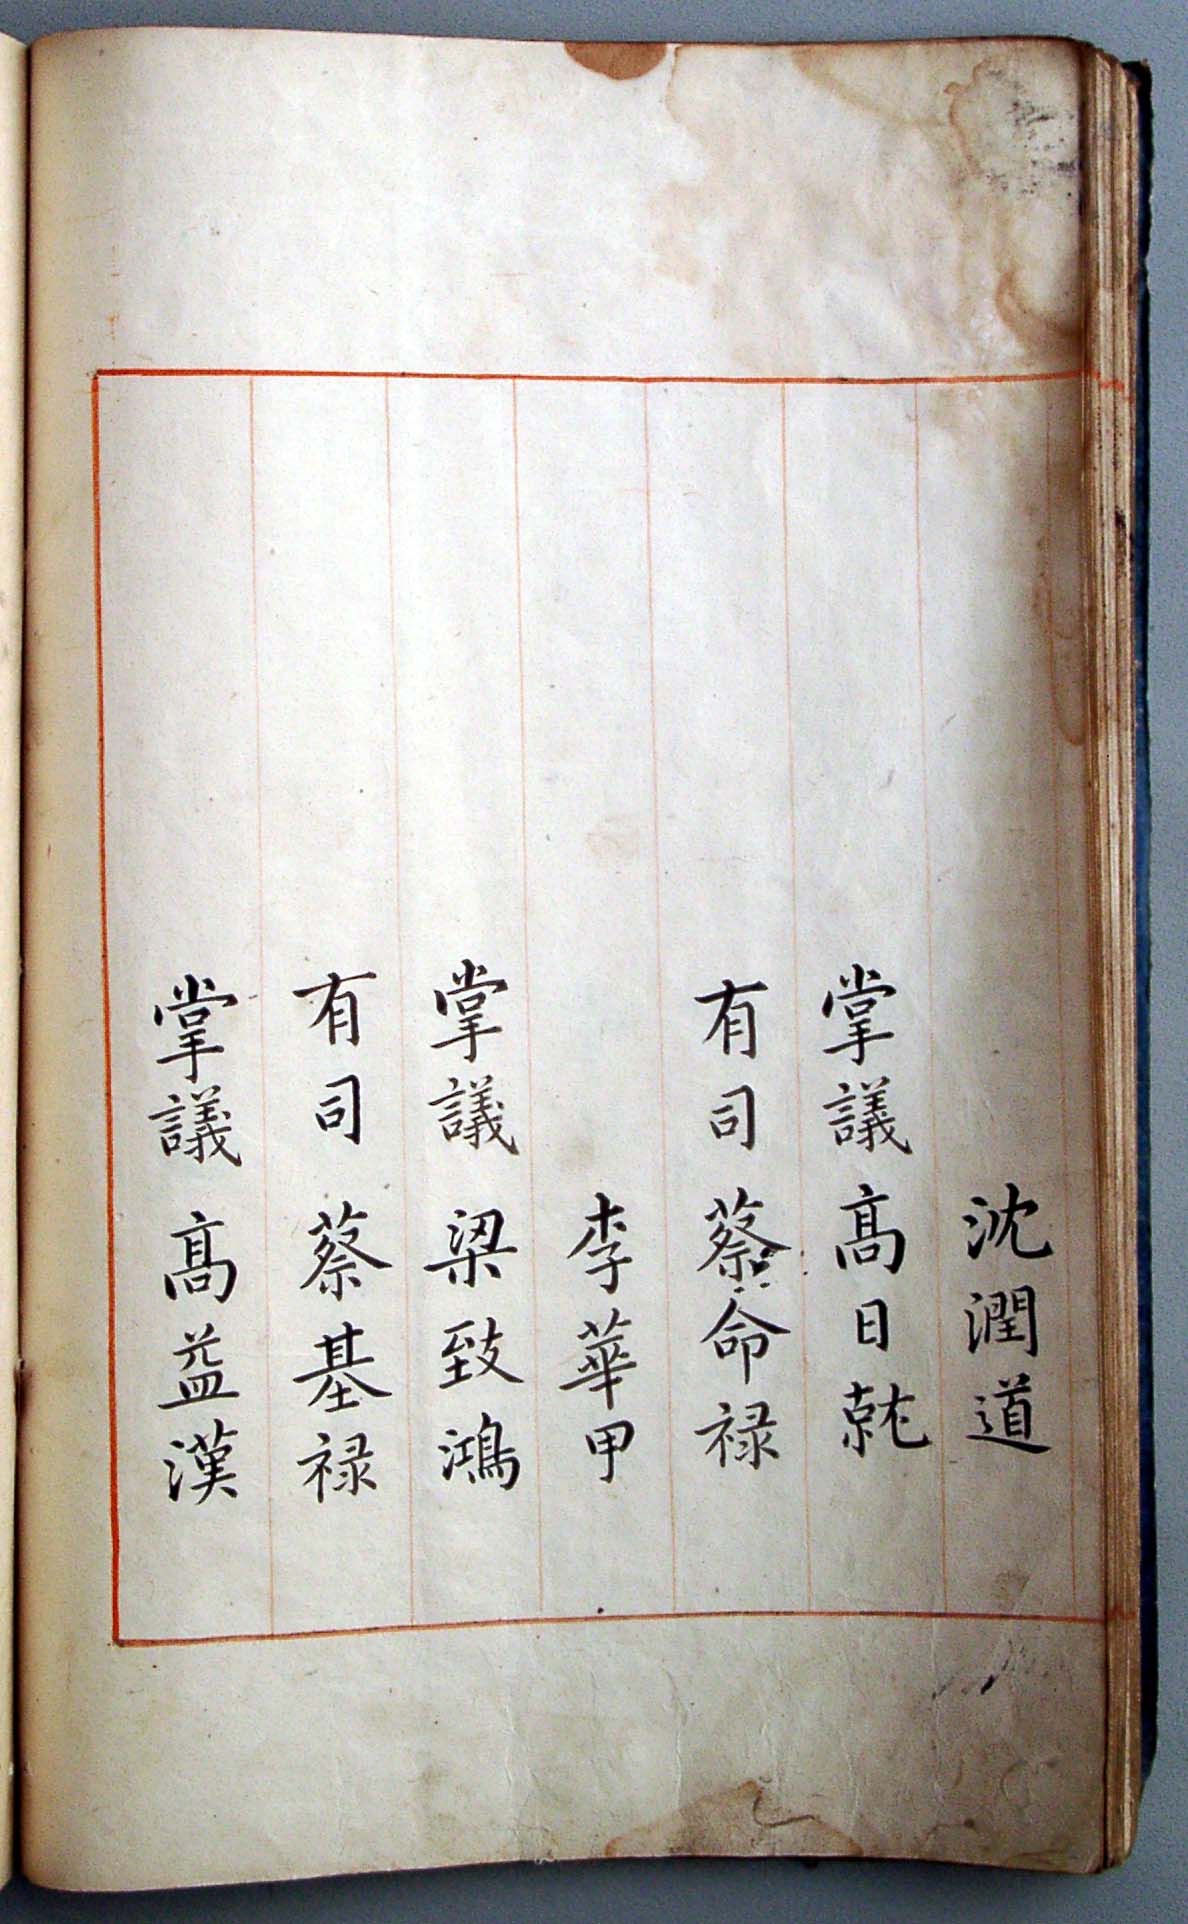 沈潤道
掌議 高日就
有司 蔡命祿
李華甲
掌議 梁致鴻
有司 蔡基祿
掌議 高益漢